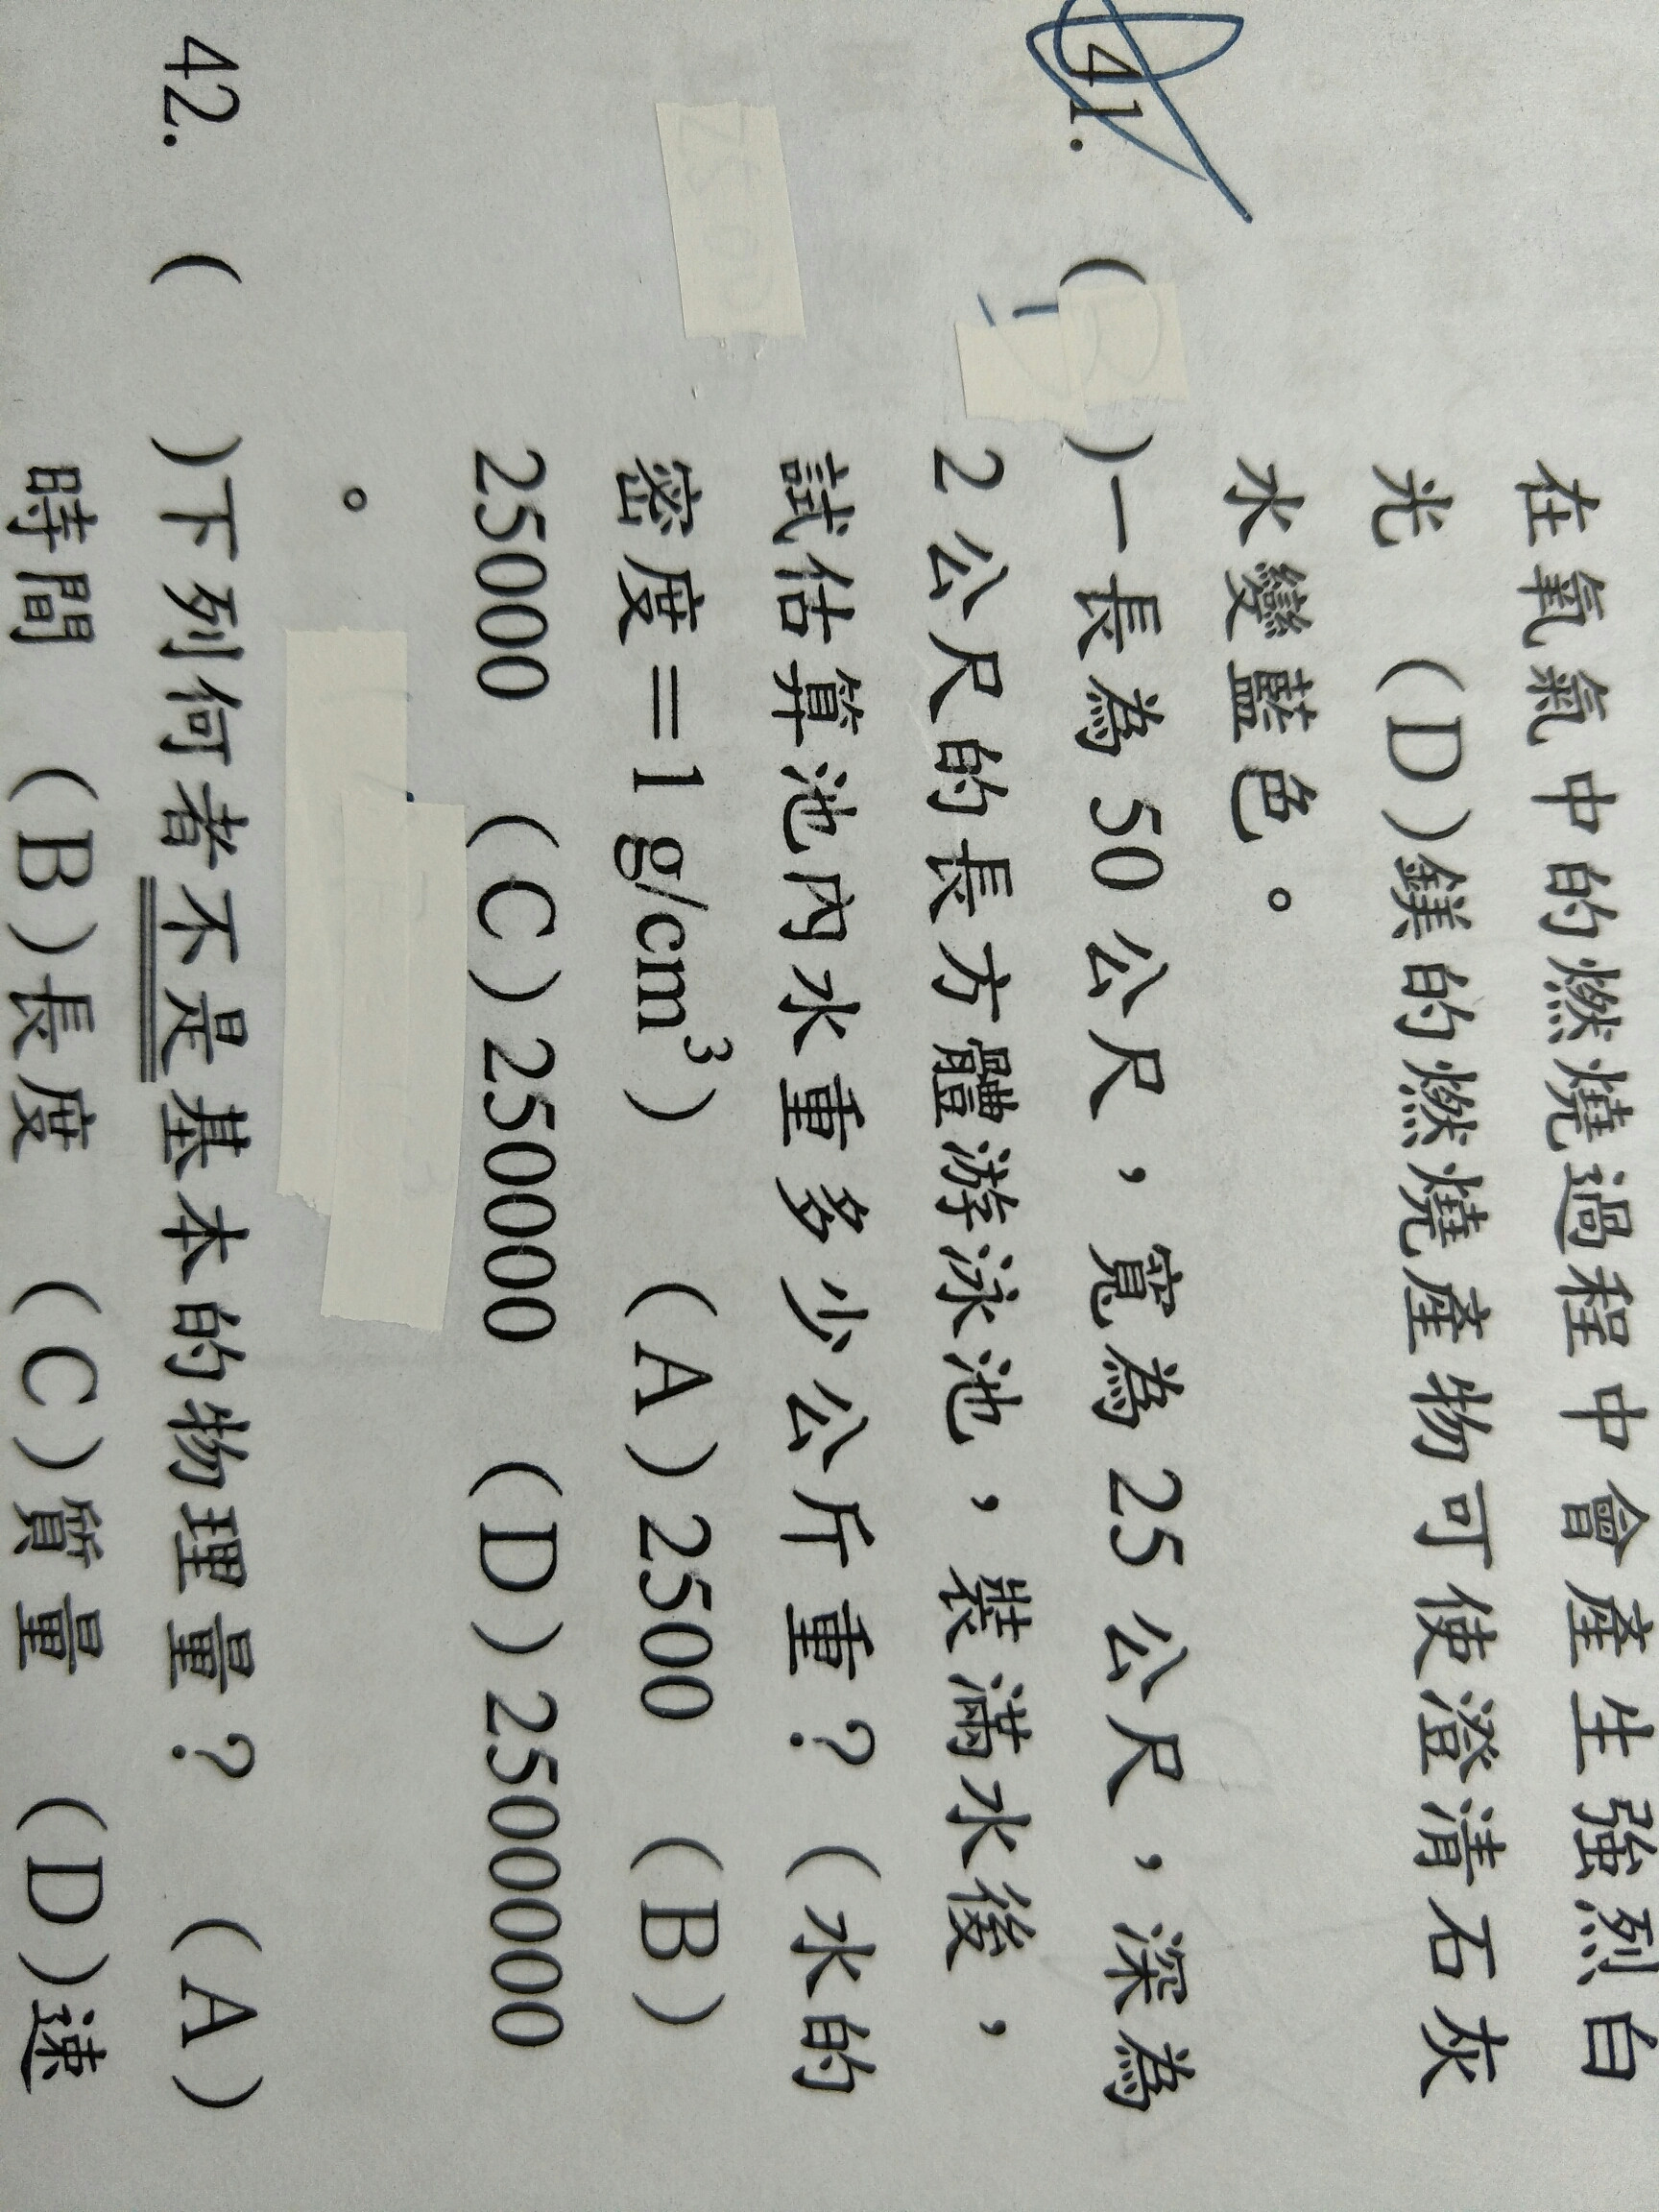 在氧氣中的燃燒過程中會產生強烈白
光 (D)鎂的燃燒產物可使澄清石灰
水變藍色。
41. ( )一長為 50 公尺，寬為 25 公尺，深為
2 公尺的長方體游泳池，裝滿水後，
試估算池內水重多少公斤重？(水的
密度＝1 g/cm³) (A)2500 (B)
25000 (C)250000 (D)2500000
。
42. ( )下列何者不是基本的物理量？ (A)
時間 (B)長度 (C)質量 (D)速